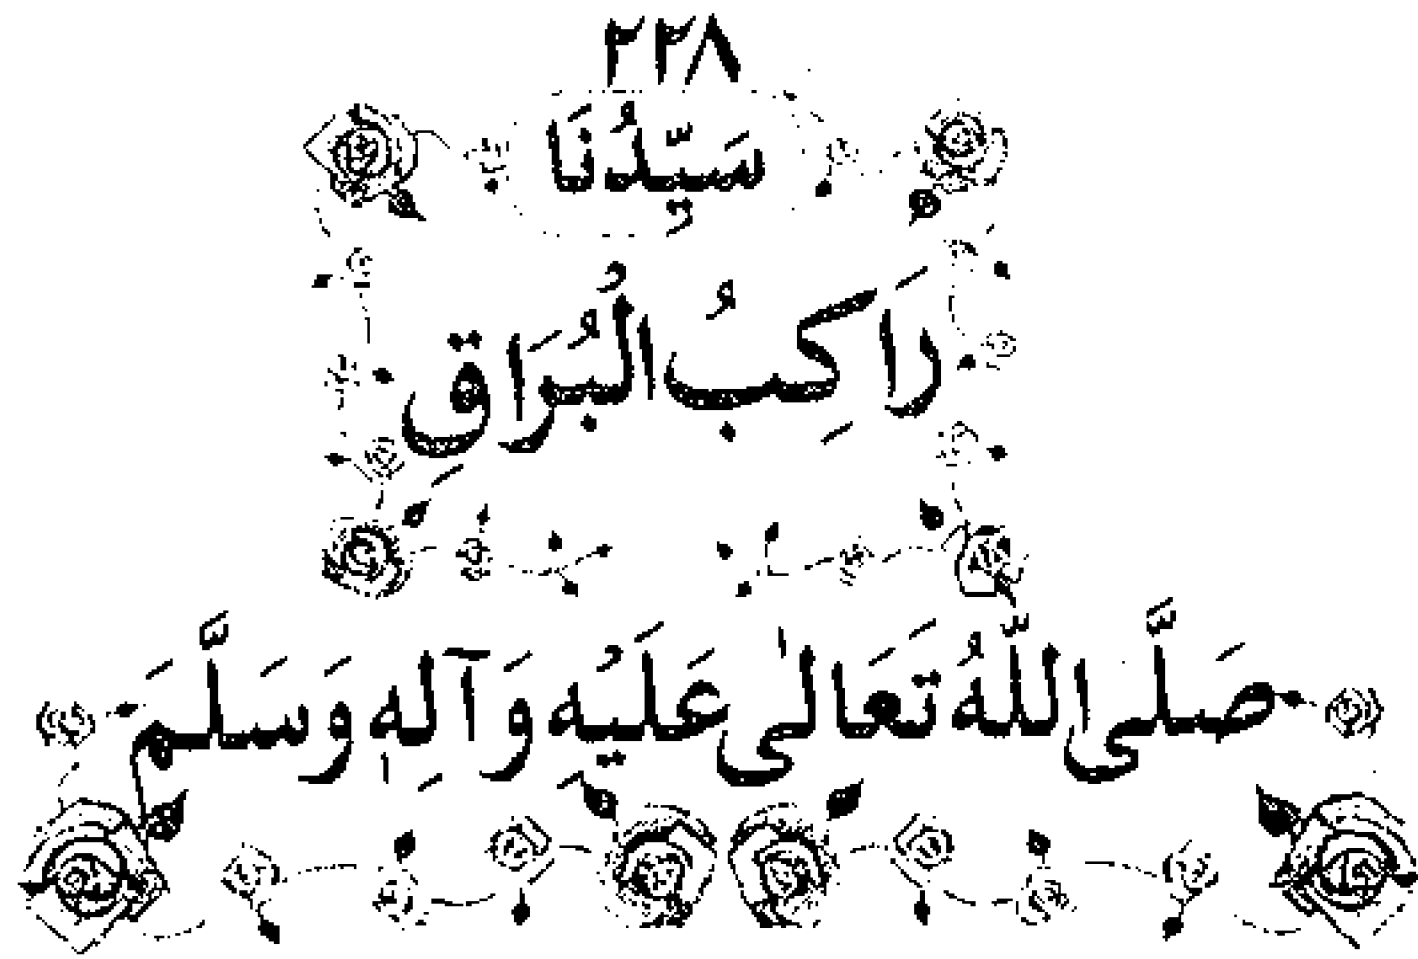 ٢٢٨
سَیِّدُنَا
رَاكِبُ الْبُرَاقِ
صَلَّى اللّٰهُ تَعَالٰى عَلَيْهِ وَآلِهٖ وَسَلَّمَ